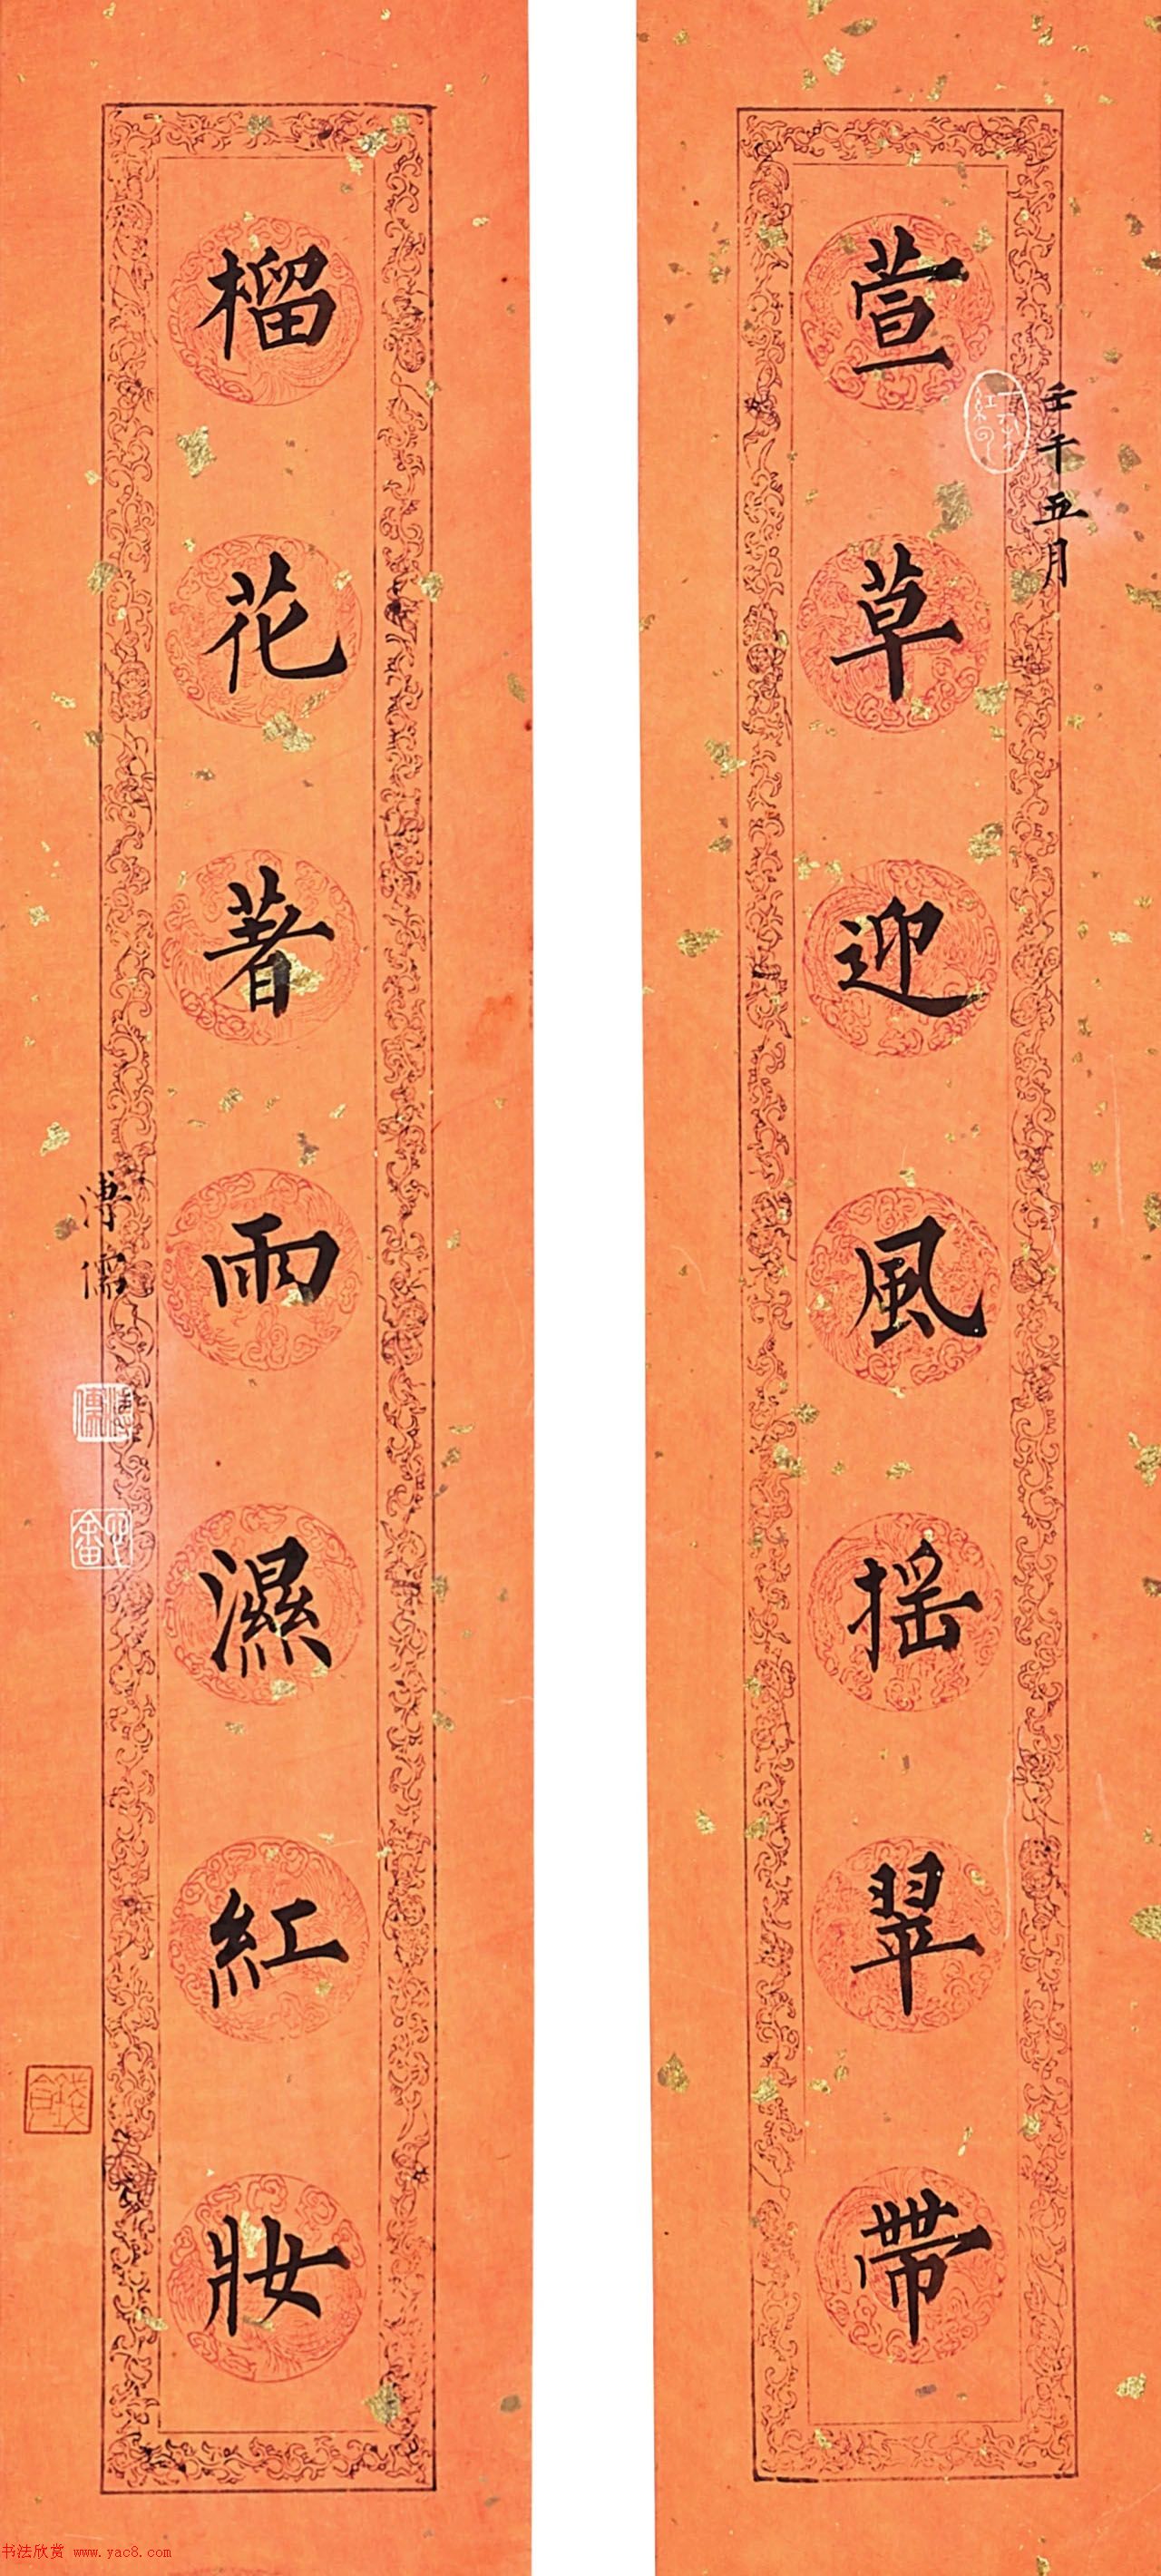 壬午五月
萱草迎風摇翠帶
榴花著雨濕紅妝
溥儒
书法欣赏 www.yac8.com